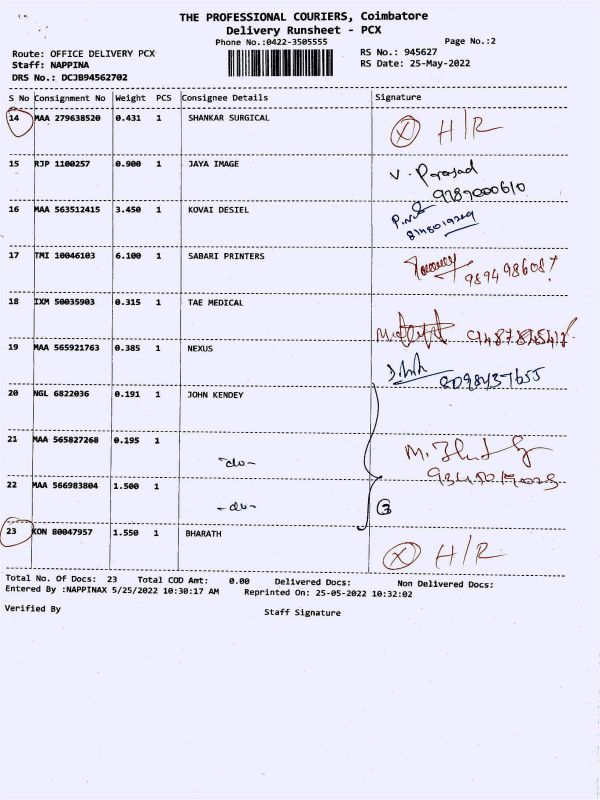 THE PROFESSIONAL COURIERS, Coimbatore
Delivery Runsheet - PCX
Phone No.:0422-3505555 Page No.:2
Route: OFFICE DELIVERY PCX RS No.: 945627
Staff: NAPPINA RS Date: 25-May-2022
DRS No.: DCJB94562702
S No Consignment No Weight PCS Consignee Details Signature
14 MAA 279638520 0.431 1 SHANKAR SURGICAL X H/R
15 RJP 1100257 0.900 1 JAYA IMAGE V. Prasad
9787000610
16 MAA 563512415 3.450 1 KOVAI DESIEL
17 TMI 10046103 6.100 1 SABARI PRINTERS
18 IXM 50035903 0.315 1 TAE MEDICAL
19 MAA 565921763 0.385 1 NEXUS
20 NGL 6822036 0.191 1 JOHN KENDEY
21 MAA 565827268 0.195 1
-do-
22 MAA 566983804 1.500 1
-do- 3
23 KON 80047957 1.550 1 BHARATH X H/R
Total No. Of Docs: 23 Total COD Amt: 0.00 Delivered Docs: Non Delivered Docs:
Entered By :NAPPINAX 5/25/2022 10:30:17 AM Reprinted On: 25-05-2022 10:32:02
Verified By Staff Signature